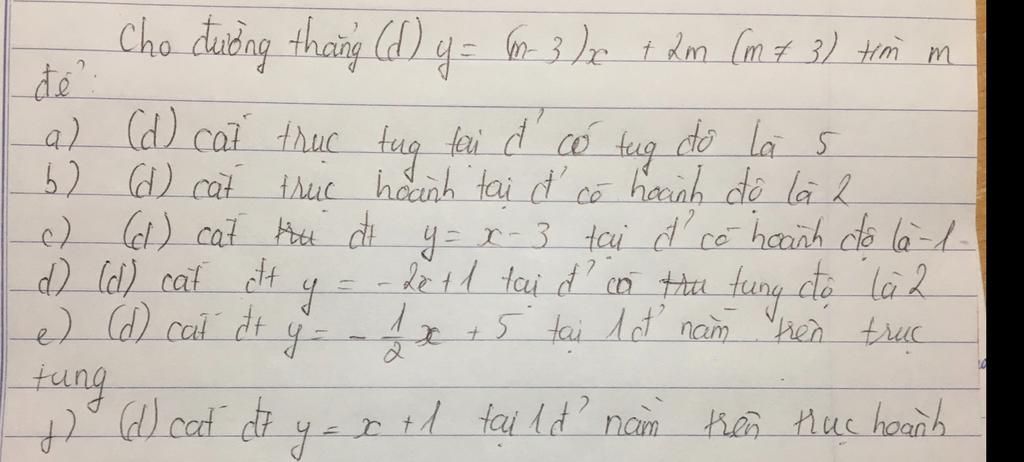 Cho đường thẳng (d) y = (m-3)x + 2m (m ≠ 3) tìm m
để:
a) (d) cắt trục tug tại đ' có tug độ là 5
b) (d) cắt trục hoành tại đ' có hoành độ là 2
c) (d) cắt đt y = x - 3 tại đ' có hoành độ là -1
d) (d) cắt đt y = - 2x + 1 tại đ' có tung độ là 2
e) (d) cắt đt y = - 1/2 x + 5 tại 1 đ' nằm trên trục
tung
f) (d) cắt đt y = x + 1 tại 1 đ' nằm trên trục hoành